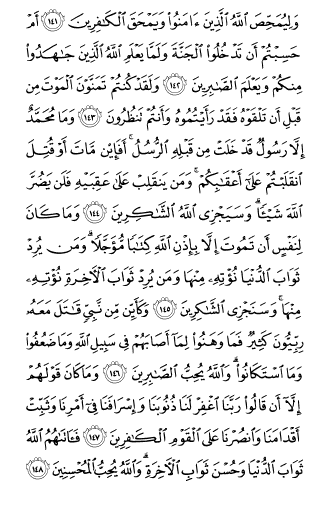 وَلِيُمَحِّصَ اللَّهُ الَّذِينَ ءَامَنُوا وَيَمْحَقَ الْكَافِرِينَ ١٤١ أَمْ
حَسِبْتُمْ أَن تَدْخُلُوا الْجَنَّةَ وَلَمَّا يَعْلَمِ اللَّهُ الَّذِينَ جَاهَدُوا
مِنكُمْ وَيَعْلَمَ الصَّابِرِينَ ١٤٢ وَلَقَدْ كُنتُمْ تَمَنَّوْنَ الْمَوْتَ مِن
قَبْلِ أَن تَلْقَوْهُ فَقَدْ رَأَيْتُمُوهُ وَأَنتُمْ تَنظُرُونَ ١٤٣ وَمَا مُحَمَّدٌ
إِلَّا رَسُولٌ قَدْ خَلَتْ مِن قَبْلِهِ الرُّسُلُ ۚ أَفَإِيْن مَّاتَ أَوْ قُتِلَ
انقَلَبْتُمْ عَلَىٰ أَعْقَابِكُمْ ۚ وَمَن يَنقَلِبْ عَلَىٰ عَقِبَيْهِ فَلَن يَضُرَّ
اللَّهَ شَيْئًا ۗ وَسَيَجْزِي اللَّهُ الشَّاكِرِينَ ١٤٤ وَمَا كَانَ
لِنَفْسٍ أَن تَمُوتَ إِلَّا بِإِذْنِ اللَّهِ كِتَابًا مُّؤَجَّلًا ۗ وَمَن يُرِدْ
ثَوَابَ الدُّنْيَا نُؤْتِهِ مِنْهَا وَمَن يُرِدْ ثَوَابَ الْآخِرَةِ نُؤْتِهِ
مِنْهَا ۚ وَسَنَجْزِي الشَّاكِرِينَ ١٤٥ وَكَأَيِّن مِّن نَّبِيٍّ قَاتَلَ مَعَهُ
رِبِّيُّونَ كَثِيرٌ فَمَا وَهَنُوا لِمَا أَصَابَهُمْ فِي سَبِيلِ اللَّهِ وَمَا ضَعُفُوا
وَمَا اسْتَكَانُوا ۗ وَاللَّهُ يُحِبُّ الصَّابِرِينَ ١٤٦ وَمَا كَانَ قَوْلَهُمْ
إِلَّا أَن قَالُوا رَبَّنَا اغْفِرْ لَنَا ذُنُوبَنَا وَإِسْرَافَنَا فِي أَمْرِنَا وَثَبِّتْ
أَقْدَامَنَا وَانصُرْنَا عَلَى الْقَوْمِ الْكَافِرِينَ ١٤٧ فَـَٔاتَاهُمُ اللَّهُ
ثَوَابَ الدُّنْيَا وَحُسْنَ ثَوَابِ الْآخِرَةِ ۗ وَاللَّهُ يُحِبُّ الْمُحْسِنِينَ ١٤٨